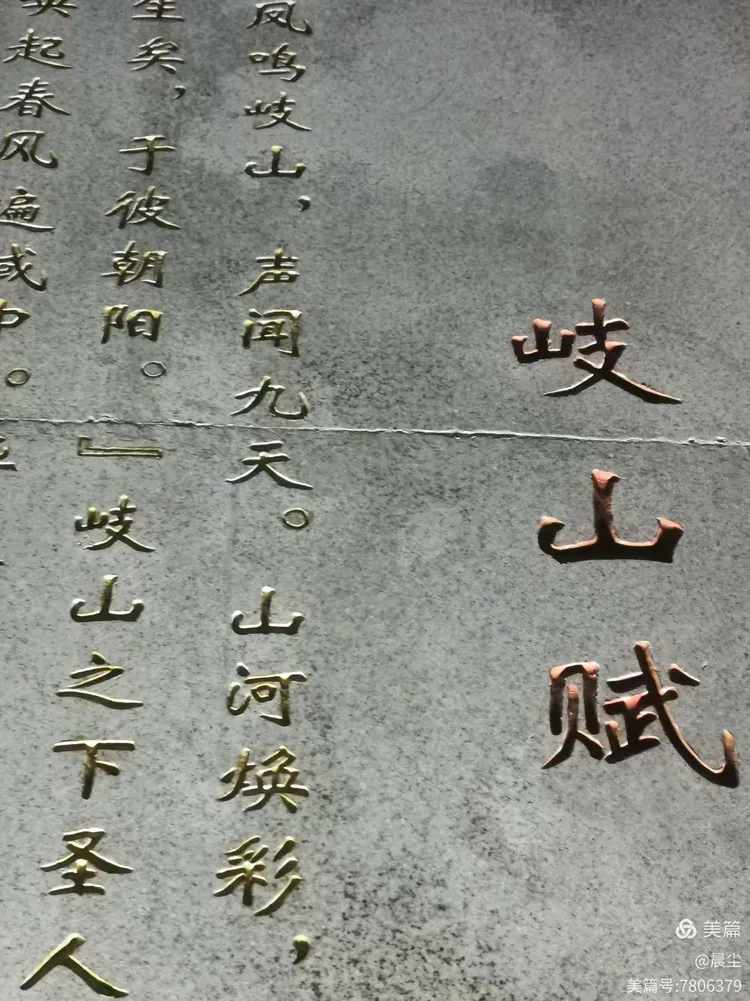 岐山赋
凤鸣岐山，声闻九天。山河焕彩，
生矣，于彼朝阳。』岐山之下圣人
起春风遍域中。
美篇
@晨尘
美篇号:7806379